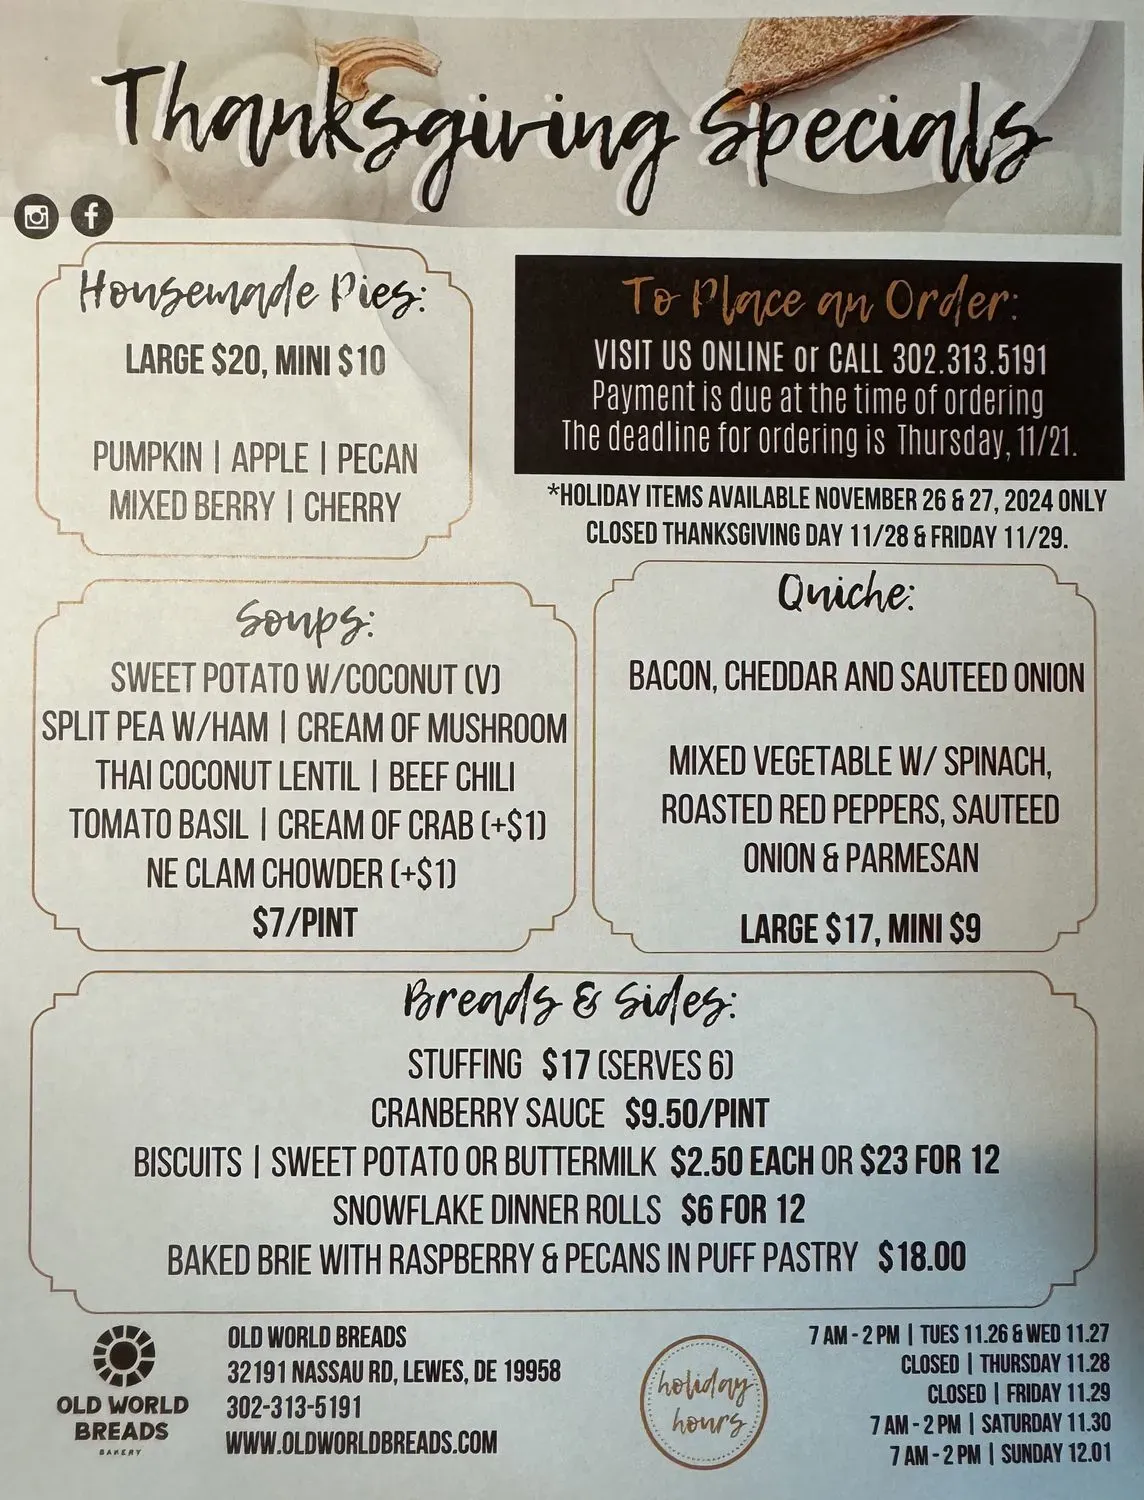 Thanksgiving Specials
Housemade Pies:
LARGE $20, MINI $10
PUMPKIN | APPLE | PECAN
MIXED BERRY | CHERRY
To Place an Order:
VISIT US ONLINE or CALL 302.313.5191
Payment is due at the time of ordering
The deadline for ordering is Thursday, 11/21.
*HOLIDAY ITEMS AVAILABLE NOVEMBER 26 & 27, 2024 ONLY
CLOSED THANKSGIVING DAY 11/28 & FRIDAY 11/29.
Soups:
SWEET POTATO W/COCONUT (V)
SPLIT PEA W/HAM | CREAM OF MUSHROOM
THAI COCONUT LENTIL | BEEF CHILI
TOMATO BASIL | CREAM OF CRAB (+$1)
NE CLAM CHOWDER (+$1)
$7/PINT
Quiche:
BACON, CHEDDAR AND SAUTEED ONION
MIXED VEGETABLE W/ SPINACH,
ROASTED RED PEPPERS, SAUTEED
ONION & PARMESAN
LARGE $17, MINI $9
Breads & Sides:
STUFFING $17 (SERVES 6)
CRANBERRY SAUCE $9.50/PINT
BISCUITS | SWEET POTATO OR BUTTERMILK $2.50 EACH OR $23 FOR 12
SNOWFLAKE DINNER ROLLS $6 FOR 12
BAKED BRIE WITH RASPBERRY & PECANS IN PUFF PASTRY $18.00
OLD WORLD
BREADS
BAKERY
OLD WORLD BREADS
32191 NASSAU RD, LEWES, DE 19958
302-313-5191
WWW.OLDWORLDBREADS.COM
holiday
hours
7 AM - 2 PM | TUES 11.26 & WED 11.27
CLOSED | THURSDAY 11.28
CLOSED | FRIDAY 11.29
7 AM - 2 PM | SATURDAY 11.30
7 AM - 2 PM | SUNDAY 12.01